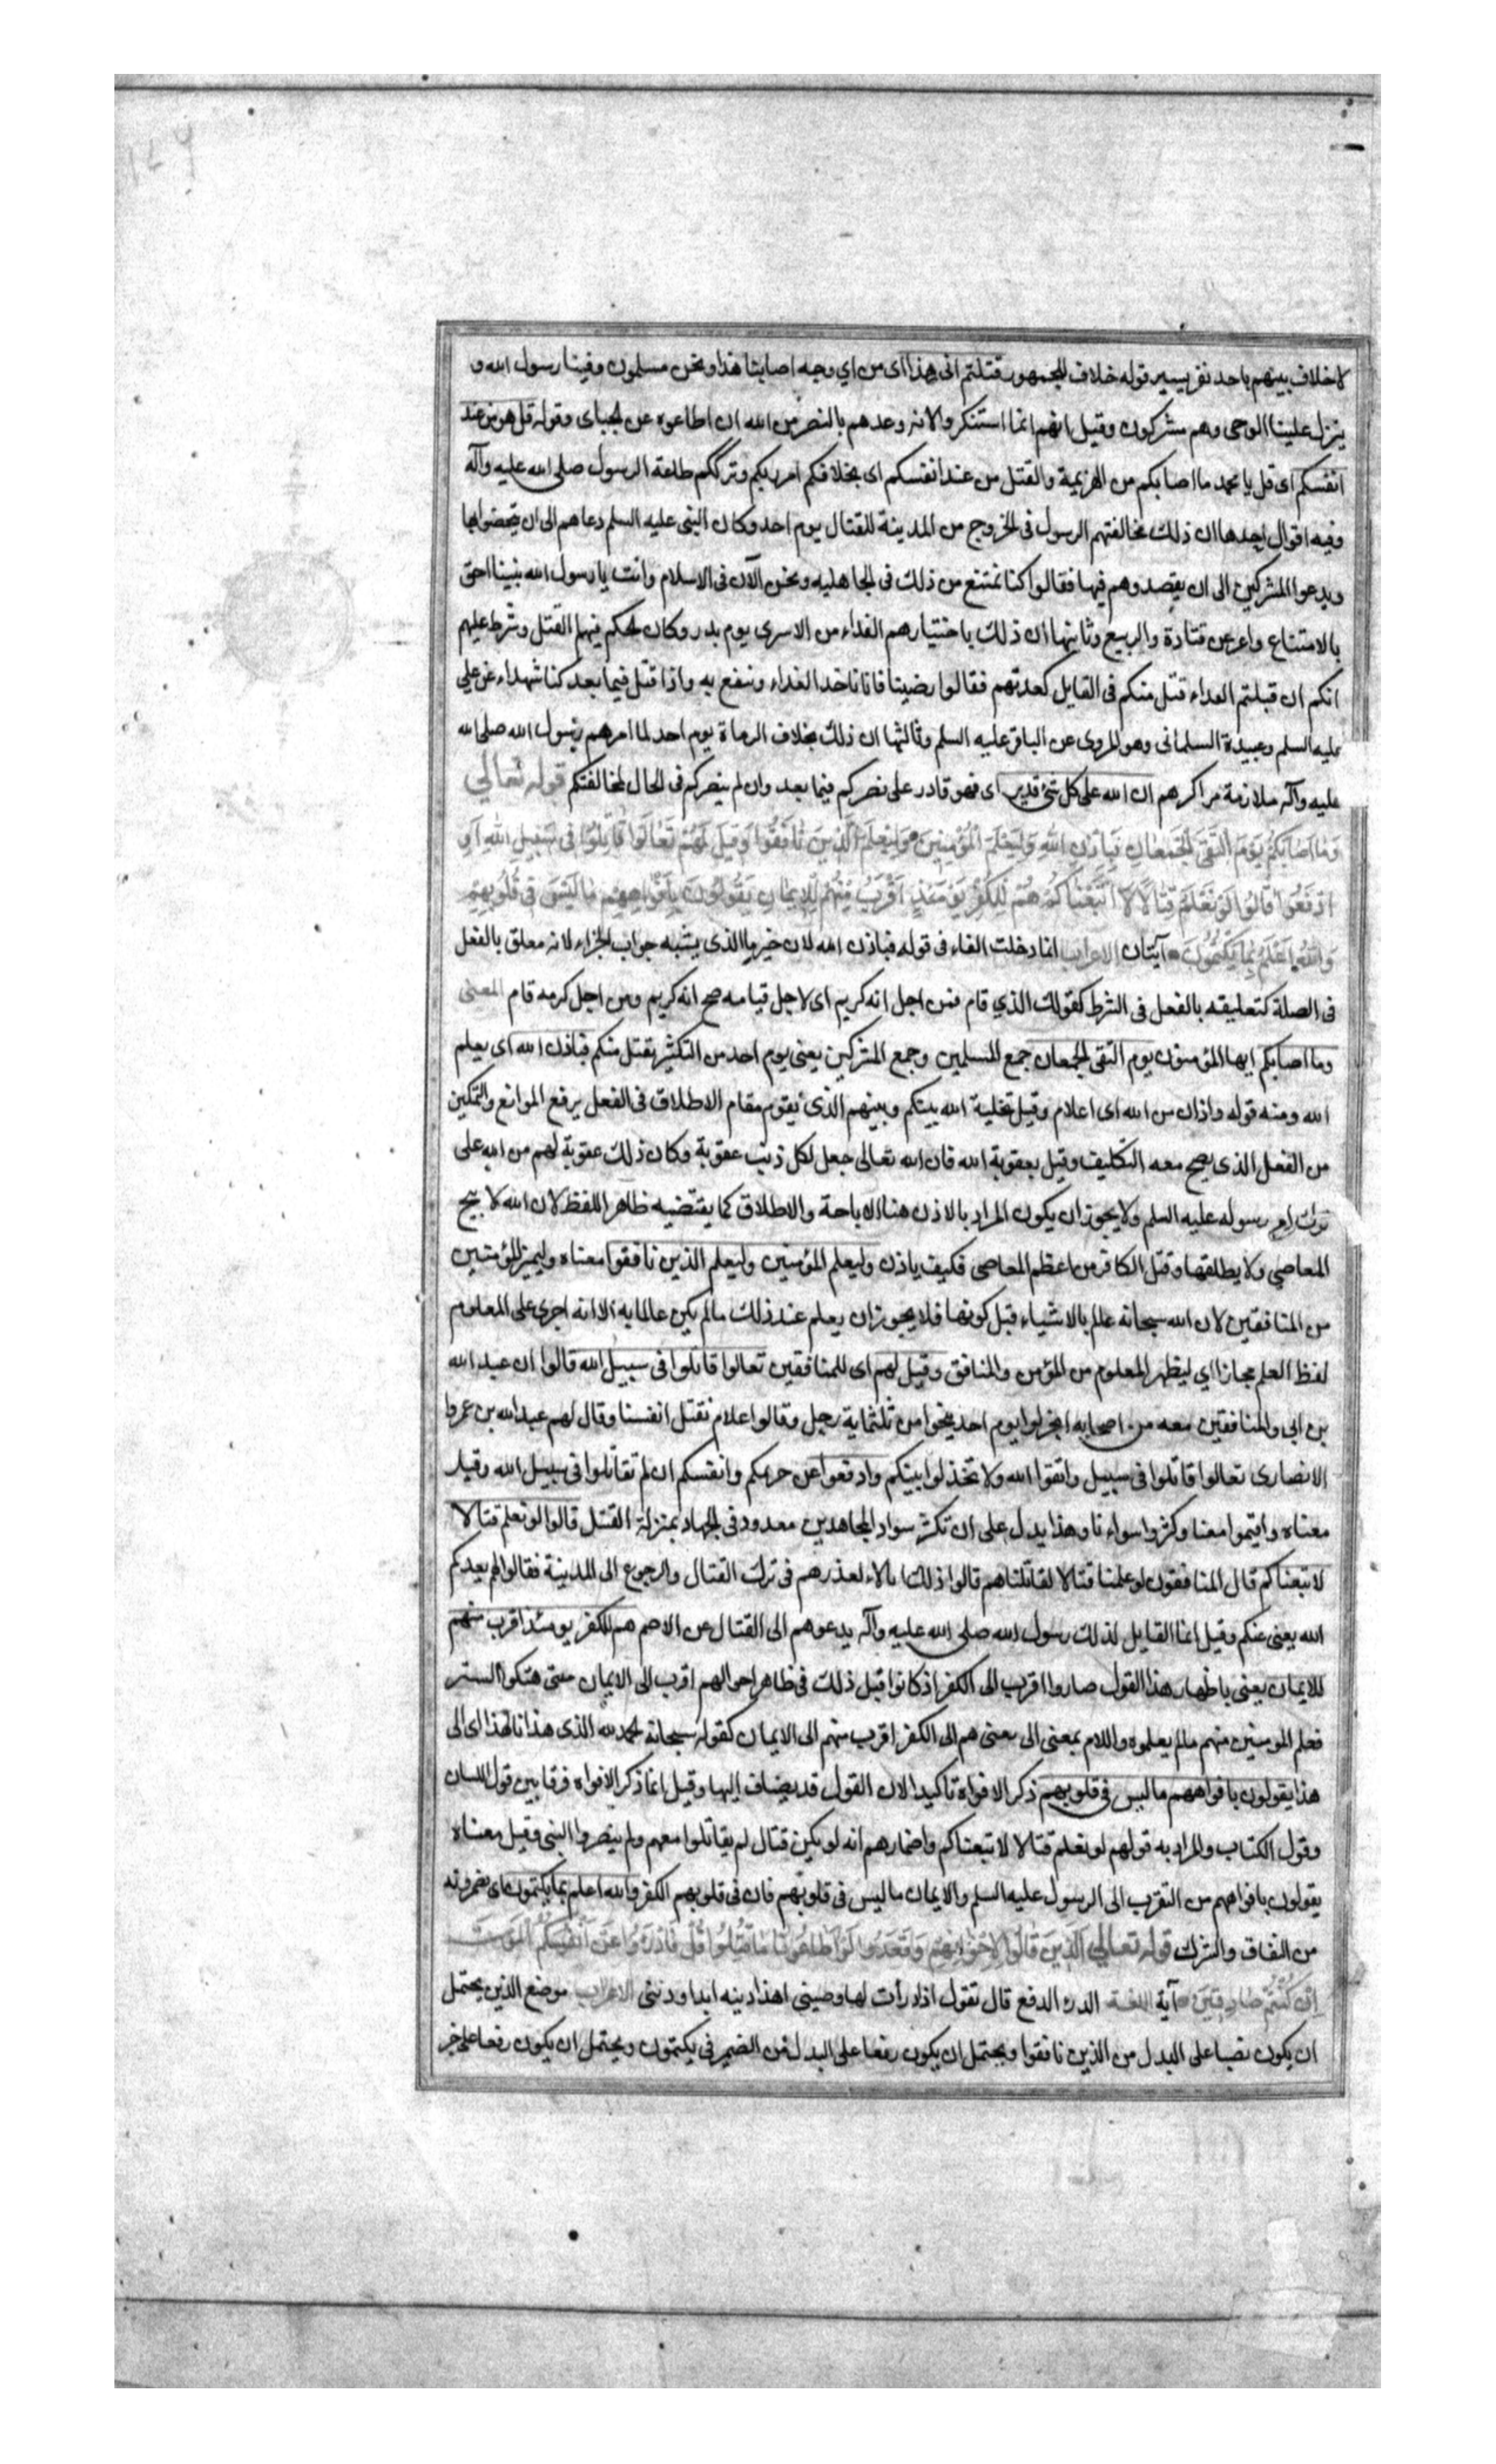 لا خلاف بينهم باحد نفر يسير قوله خلاف الجمهور قتلتم انى هذا اى من اي وجه اصابنا هذا ونحن مسلمون وفينا رسول الله و
ينزل علينا الوحى وهم مشركون وقيل انهم انما استنكروا لانه وعدهم بالنصر من الله ان اطاعوه عن الجباى وقوله قل هو من عند
انفسكم اى قل يا محمد ما اصابكم من الهزيمة والقتل من عند انفسكم اى بخلافكم امر ربكم وترككم طاعة الرسول صلى الله عليه وآله
وفيه اقوال احدها ان ذلك مخالفتهم الرسول فى الخروج من المدينة للقتال يوم احد وكان النبى عليه السلم دعاهم الى ان يتحصنوا بها
ويدعوا المشركين الى ان يقصدوهم فيها فقالوا كنا نمتنع من ذلك فى الجاهليه ونحن الآن فى الاسلام وانت يا رسول الله نبينا احق
بالامتناع واعز عن قتادة والربيع وثانيها ان ذلك باختيارهم الفداء من الاسرى يوم بدر وكان الحكم فيهم القتل وشرط عليهم
انكم ان قبلتم الفداء قتل منكم فى القابل كعدتهم فقالوا رضينا فانا ناخذ الفداء وننتفع به واذا قتل فيما بعد كنا شهداء عن علي
عليه السلم وعبيدة السلمانى وهو المروى عن الباقر عليه السلم وثالثها ان ذلك بخلاف الرماة يوم احد لما امرهم رسول الله صلى الله
عليه وآله ملازمة مراكزهم ان الله على كل شئ قدير اى فهو قادر على نصركم فيما بعد وان لم ينصركم فى الحال لمخالفتكم قوله تعالى
وَمَا اَصَابَكُمْ يَوْمَ الْتَقَى الْجَمْعَانِ فَبِاِذْنِ اللهِ وَلِيَعْلَمَ الْمُؤْمِنِينَ وَلِيَعْلَمَ الَّذِينَ نَافَقُوا وَقِيلَ لَهُمْ تَعَالَوْا قَاتِلُوا فِى سَبِيلِ اللهِ اَوِ
ادْفَعُوا قَالُوا لَوْ نَعْلَمُ قِتَالًا لَاتَّبَعْنَاكُمْ هُمْ لِلْكُفْرِ يَوْمَئِذٍ اَقْرَبُ مِنْهُمْ لِلْاِيمَانِ يَقُولُونَ بِاَفْوَاهِهِمْ مَا لَيْسَ فِى قُلُوبِهِمْ
وَاللهُ اَعْلَمُ بِمَا يَكْتُمُونَ آيتان الاعراب انما دخلت الفاء فى قوله فباذن الله لان خبر ما الذى يشبه جواب الجزاء لانه معلق بالفعل
فى الصلة كتعليقه بالفعل فى الشرط كقولك الذي قام فمن اجل انه كريم اى لاجل قيامه صح انه كريم ومن اجل كرمه قام المعنى
وما اصابكم ايها المؤمنون يوم التقى الجمعان جمع المسلمين وجمع المشركين يعنى يوم احد من التكثير بقتل منكم فباذن الله اى بعلم
الله ومنه قوله واذان من الله اى اعلام وقيل بتخلية الله بينكم وبينهم الذى يقوم مقام الاطلاق فى الفعل برفع الموانع والتمكين
من الفعل الذى يصح معه التكليف وقيل بعقوبة الله فان الله تعالى جعل لكل ذنب عقوبة وكان ذلك عقوبة لهم من الله على
ترك امر رسوله عليه السلم ولا يجوز ان يكون المراد بالاذن هنا الاباحة والاطلاق كما يقتضيه ظاهر اللفظ لان الله لا يبيح
المعاصي ولا يطلقها وقتل الكافر من اعظم المعاصى فكيف ياذن وليعلم المؤمنين وليعلم الذين نافقوا معناه وليميز المؤمنين
من المنافقين لان الله سبحانه عالم بالاشياء قبل كونها فلا يجوز ان يعلم عند ذلك ما لم يكن عالما به الا انه اجرى على المعلوم
لفظ العلم مجازا اي ليظهر المعلوم من المؤمن والمنافق وقيل لهم اى للمنافقين تعالوا قاتلوا فى سبيل الله قالوا ان عبد الله
بن ابى والمنافقين معه من اصحابه انخزلوا يوم احد نحوا من ثلثماية رجل وقالوا علام نقتل انفسنا وقال لهم عبد الله بن عمرو
الانصارى تعالوا قاتلوا فى سبيل واتقوا الله ولا تخذلوا بينكم وادفعوا عن حريمكم وانفسكم ان لم تقاتلوا فى سبيل الله وقيل
معناه واقيموا معنا وكثروا سوادنا وهذا يدل على ان تكثر سواد المجاهدين معدود فى الجهاد بمنزلة القتل قالوا لو نعلم قتالا
لاتبعناكم قال المنافقون لو علمنا قتالا لقاتلناهم قالوا ذلك ابلاء لعذرهم فى ترك القتال والرجوع الى المدينة فقالوا لهم يعدكم
الله يعنى عنكم وقيل انما القايل لذلك رسول الله صلى الله عليه وآله يدعوهم الى القتال عن الاصم هم للكفر يومئذ اقرب منهم
للايمان يعنى باظهار هذا القول صاروا اقرب الى الكفر اذ كانوا قبل ذلك فى ظاهر احوالهم اقرب الى الايمان حتى هتكوا الستر
فعلم المومنين منهم ما لم يعلموه واللام بمعنى الى يعنى هم الى الكفر اقرب منهم الى الايمان كقوله سبحانه الحمد لله الذى هدانا لهذا اى الى
هذا يقولون بافواههم ما ليس فى قلوبهم ذكر الافواه تاكيدا لان القول قد يضاف اليها وقيل انما ذكر الافواه فرقا بين قول اللسان
وقول الكتاب والمراد به قولهم لو نعلم قتالا لاتبعناكم واضمارهم انه لو يكن قتال لم يقاتلوا معهم ولم ينصروا النبى وقيل معناه
يقولون بافواههم من التقرب الى الرسول عليه السلم والايمان ما ليس فى قلوبهم فان فى قلوبهم الكفر والله اعلم بما يكتمون اى يضمرونه
من النفاق والشرك قوله تعالى الَّذِينَ قَالُوا لِاِخْوَانِهِمْ وَقَعَدُوا لَوْ اَطَاعُونَا مَا قُتِلُوا قُلْ فَادْرَؤُا عَنْ اَنْفُسِكُمُ الْمَوْتَ
اِنْ كُنْتُمْ صَادِقِينَ آية اللغة الدرء الدفع قال تقول اذا درأت لها وضينى اهذا دينه ابدا ودينى الاعراب موضع الذين يحتمل
ان يكون نصبا على البدل من الذين نافقوا ويحتمل ان يكون رفعا على البدل من الضمير فى يكتمون ويحتمل ان يكون رفعا على خبر